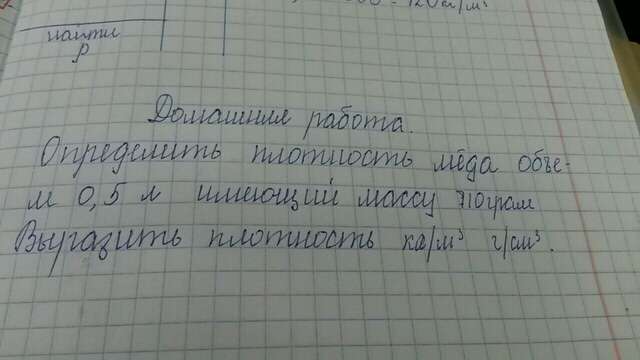 120 кг/м³
найти
ρ
Домашняя работа.
Определить плотность мёда объе-
м 0,5 л имеющий массу 710 грам
Выразить плотность кг/м³ г/см³.